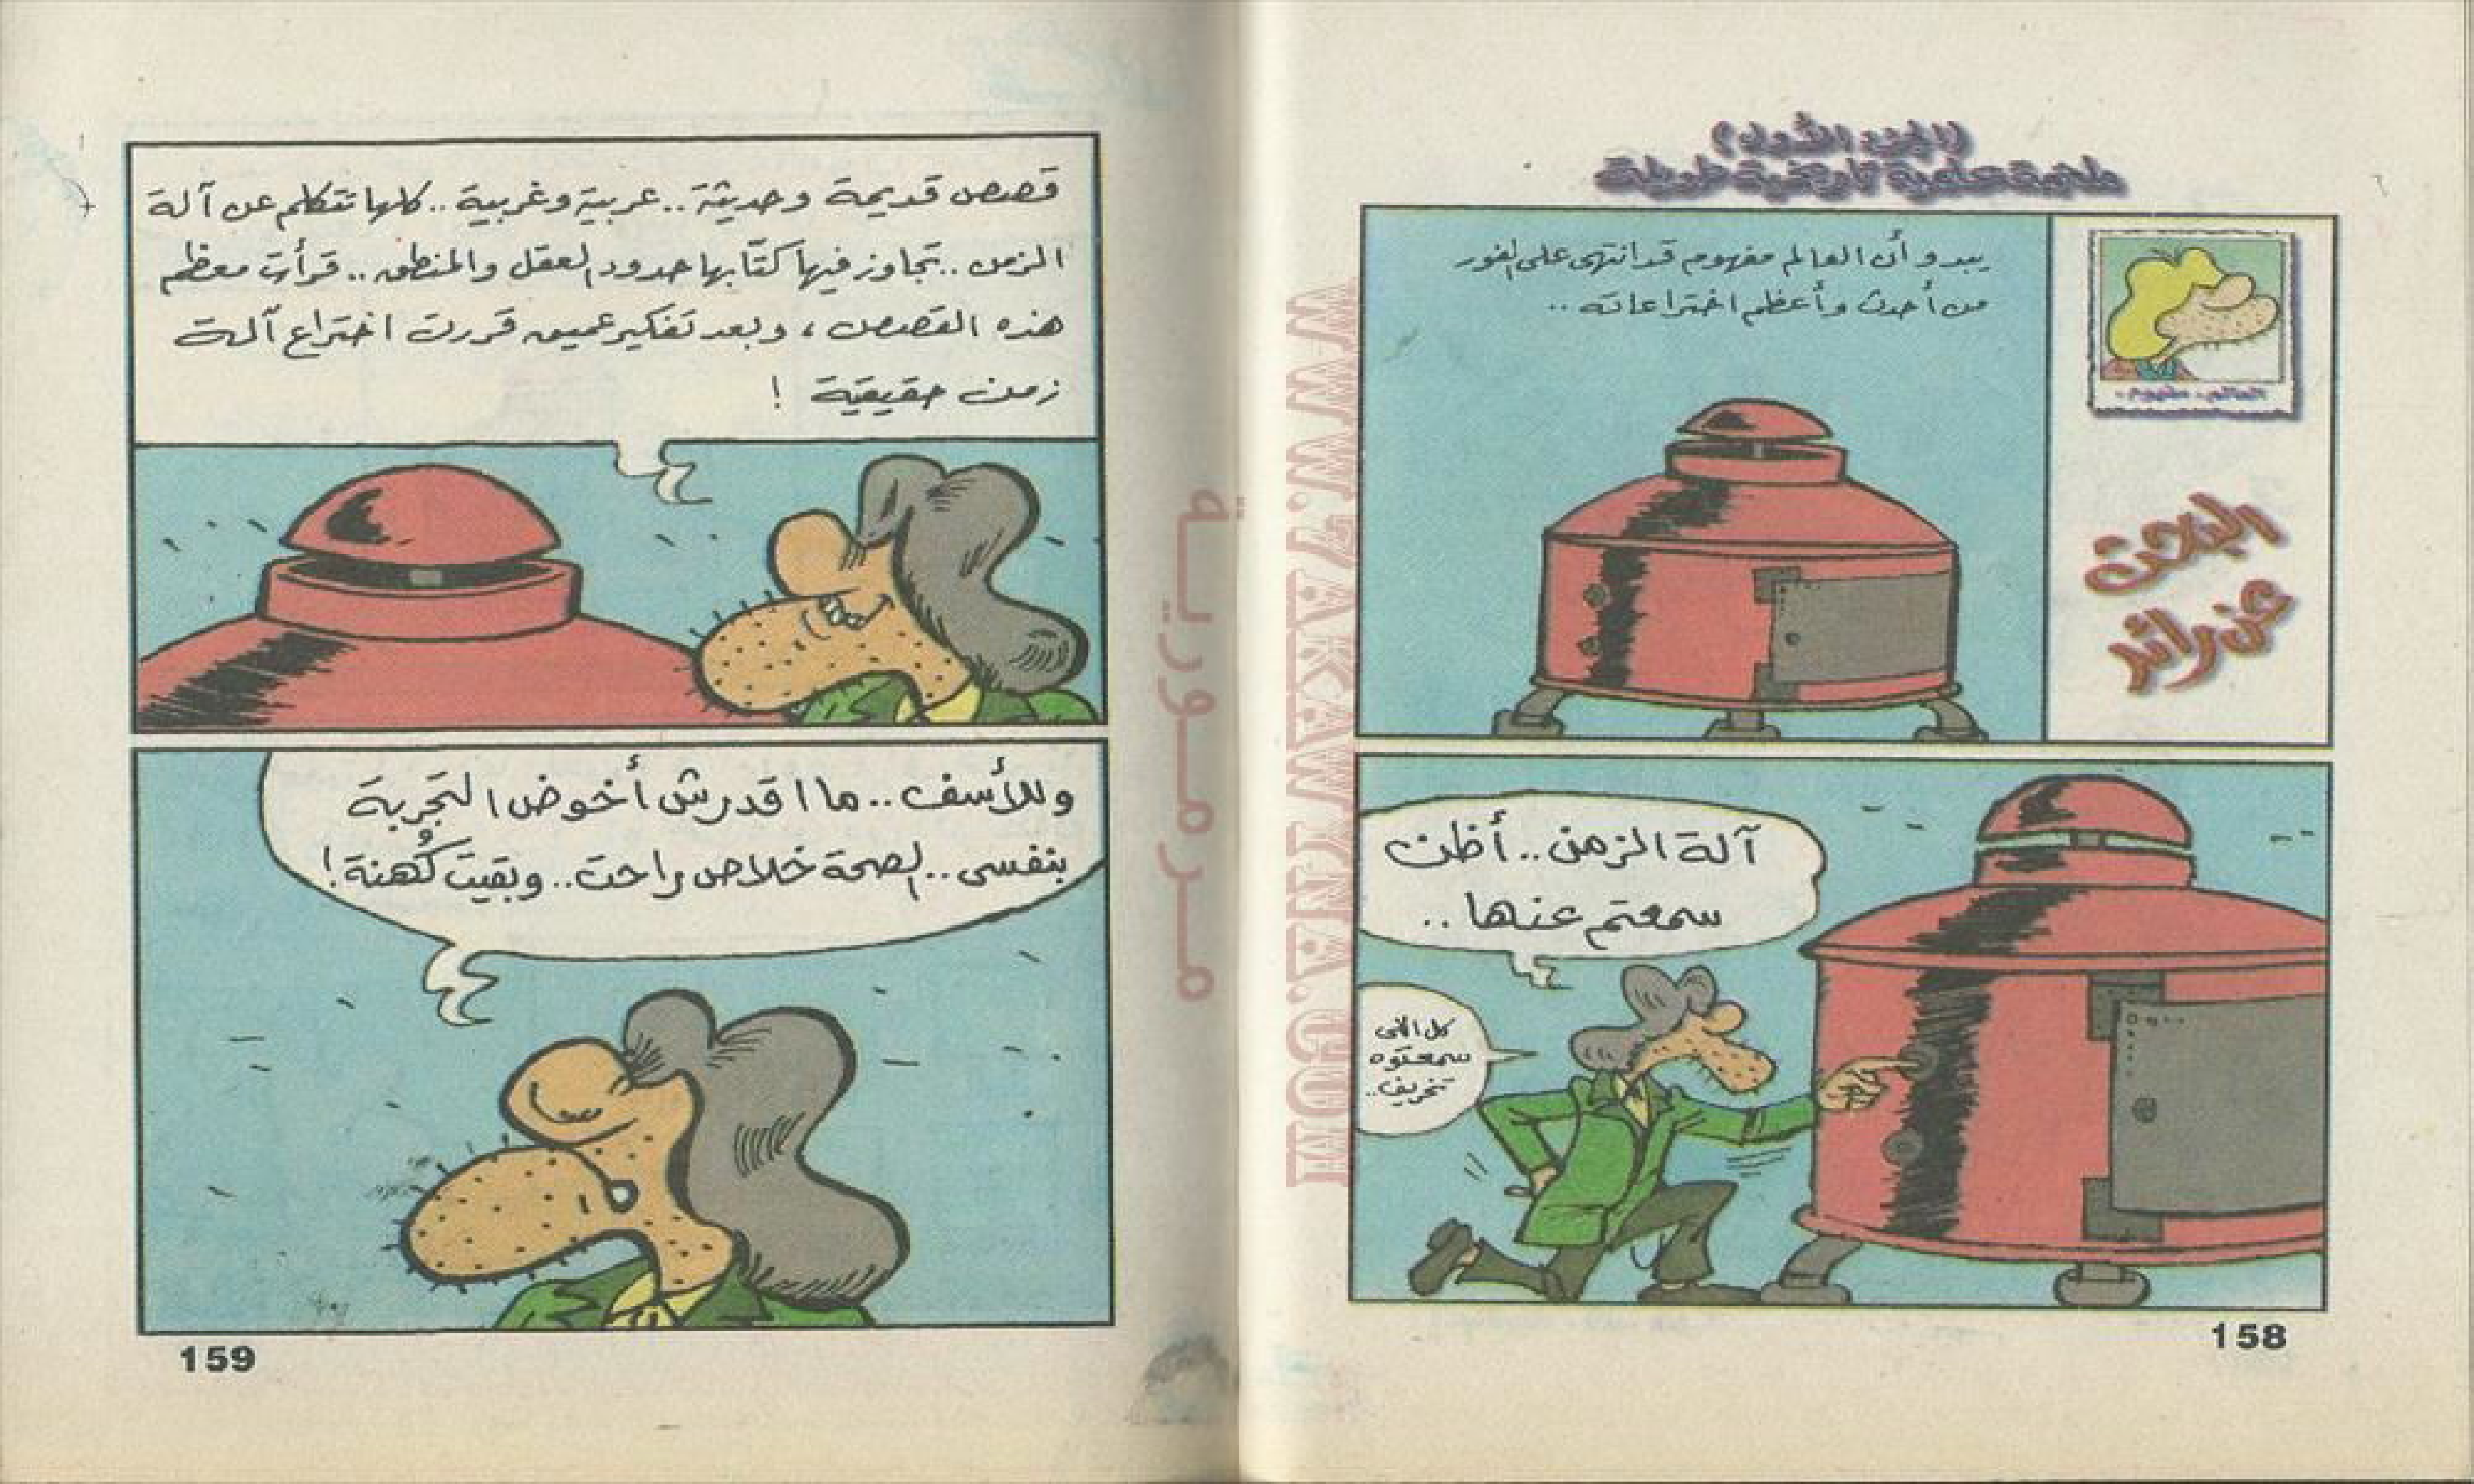 (الجزء الأول)
ملحمة علمية تاريخية طويلة
العالم. مفهوم.
البحث
عن رائد
يبدو أن العالم مفهوم قد انتهى على الفور
من أحدث وأعظم اختراعاته ..
آلة الزمن.. أظن
سمعتم عنها ..
كل اللى
سمعتوه
تخريف..
158
قصص قديمة وحديثة.. عربية وغربية.. كلها تتكلم عن آلة
الزمن.. تجاوز فيها كتّابها حدود العقل والمنطق.. قرأت معظم
هذه القصص، وبعد تفكير عميق قررت اختراع آلة
زمن حقيقية !
وللأسف.. ما اقدرش أخوض التجربة
بنفسى.. الصحة خلاص راحت.. وبقيت كُهنة!
159
مـرمـوريـة